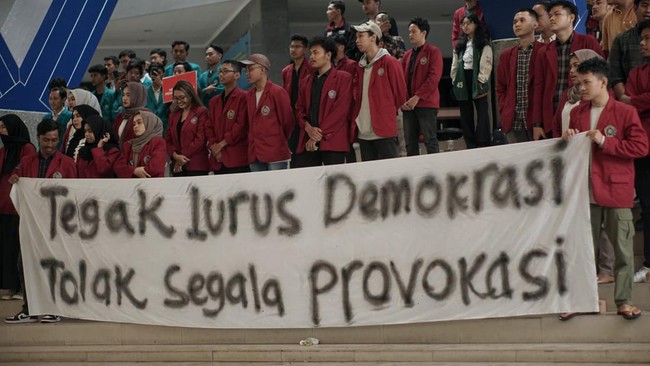 Tegak lurus Demokrasi
Tolak Segala provokasi